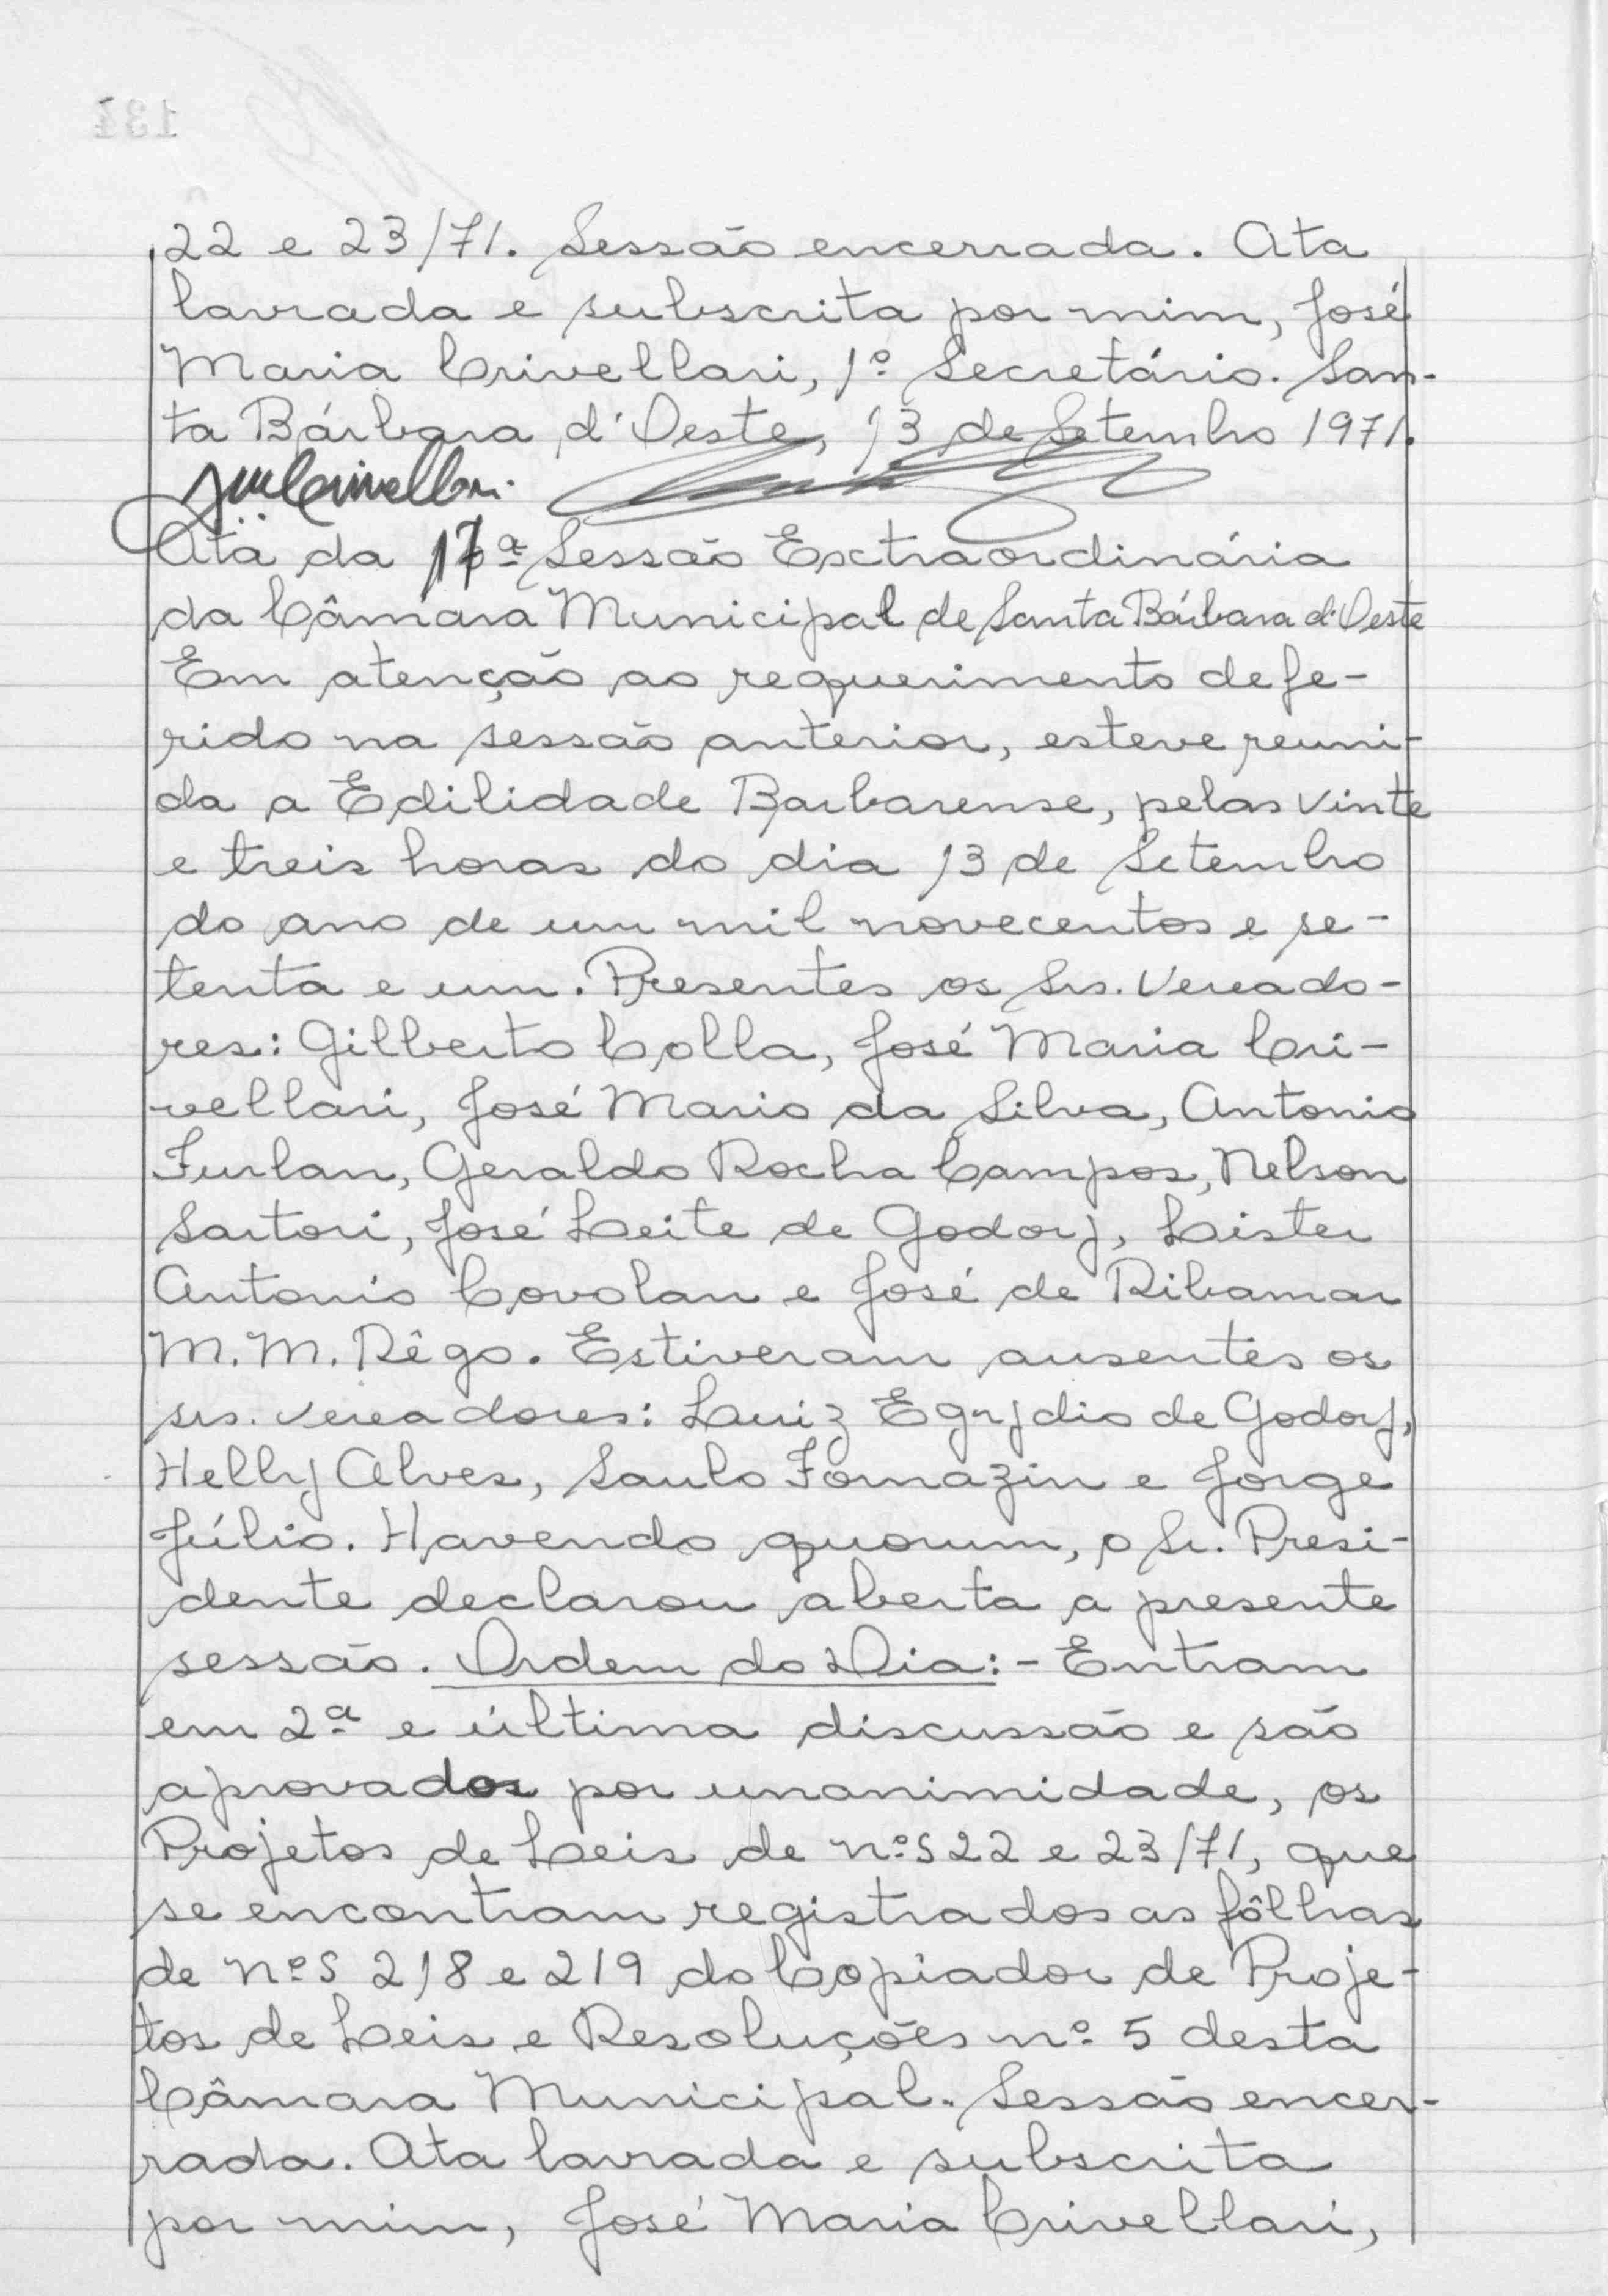 22 e 23/71. Sessão encerrada. Ata
lavrada e subscrita por mim, José
Maria Crivellari, 1º Secretário. San-
ta Bárbara d'Oeste, 13 de Setembro 1971.
Ata da 17ª Sessão Extraordinária
da Câmara Municipal de Santa Bárbara d'Oeste
Em atenção ao requerimento defe-
rido na sessão anterior, esteve reuni-
da a Edilidade Barbarense, pelas vinte
e treis horas do dia 13 de Setembro
do ano de um mil novecentos e se-
tenta e um. Presentes os Srs. Vereado-
res: Gilberto Colla, José Maria Cri-
vellari, José Mario da Silva, Antonio
Furlan, Geraldo Rocha Campos, Nelson
Sartori, José Leite de Godoy, Lister
Antonio Covolan e José de Ribamar
M. M. Rêgo. Estiveram ausentes os
srs. vereadores: Luiz Egydio de Godoy,
Helly Alves, Saulo Fornazin e Jorge
Júlio. Havendo quorum, o Sr. Presi-
dente declarou aberta a presente
sessão. Ordem do Dia:- Entram
em 2ª e última discussão e são
aprovados por unanimidade, os
Projetos de Leis de nºs 22 e 23/71, que
se encontram registrados as fôlhas
de nºs 218 e 219 do Copiador de Proje-
tos de Leis e Resoluções nº 5 desta
Câmara Municipal. Sessão encer-
rada. Ata lavrada e subscrita
por mim, José Maria Crivellari,